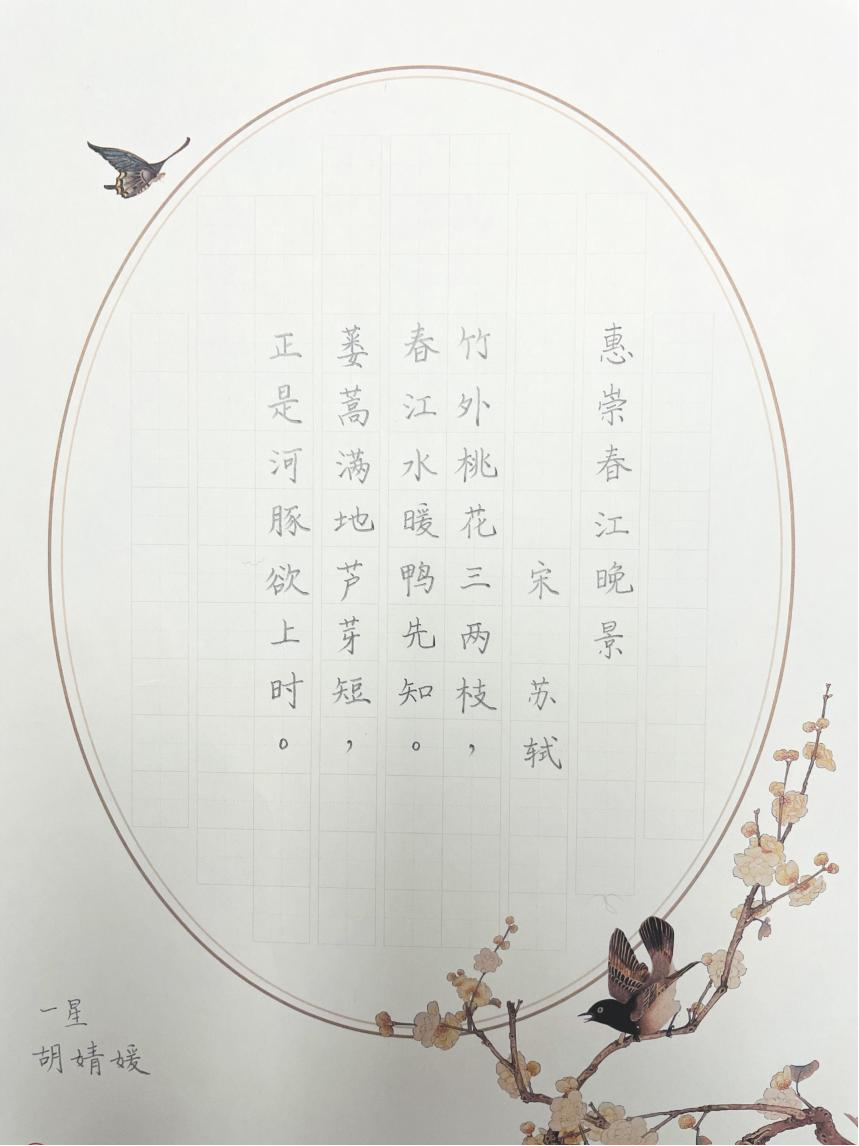 惠崇春江晚景
宋 苏轼
竹外桃花三两枝，
春江水暖鸭先知。
蒌蒿满地芦芽短，
正是河豚欲上时。
一星
胡婧媛